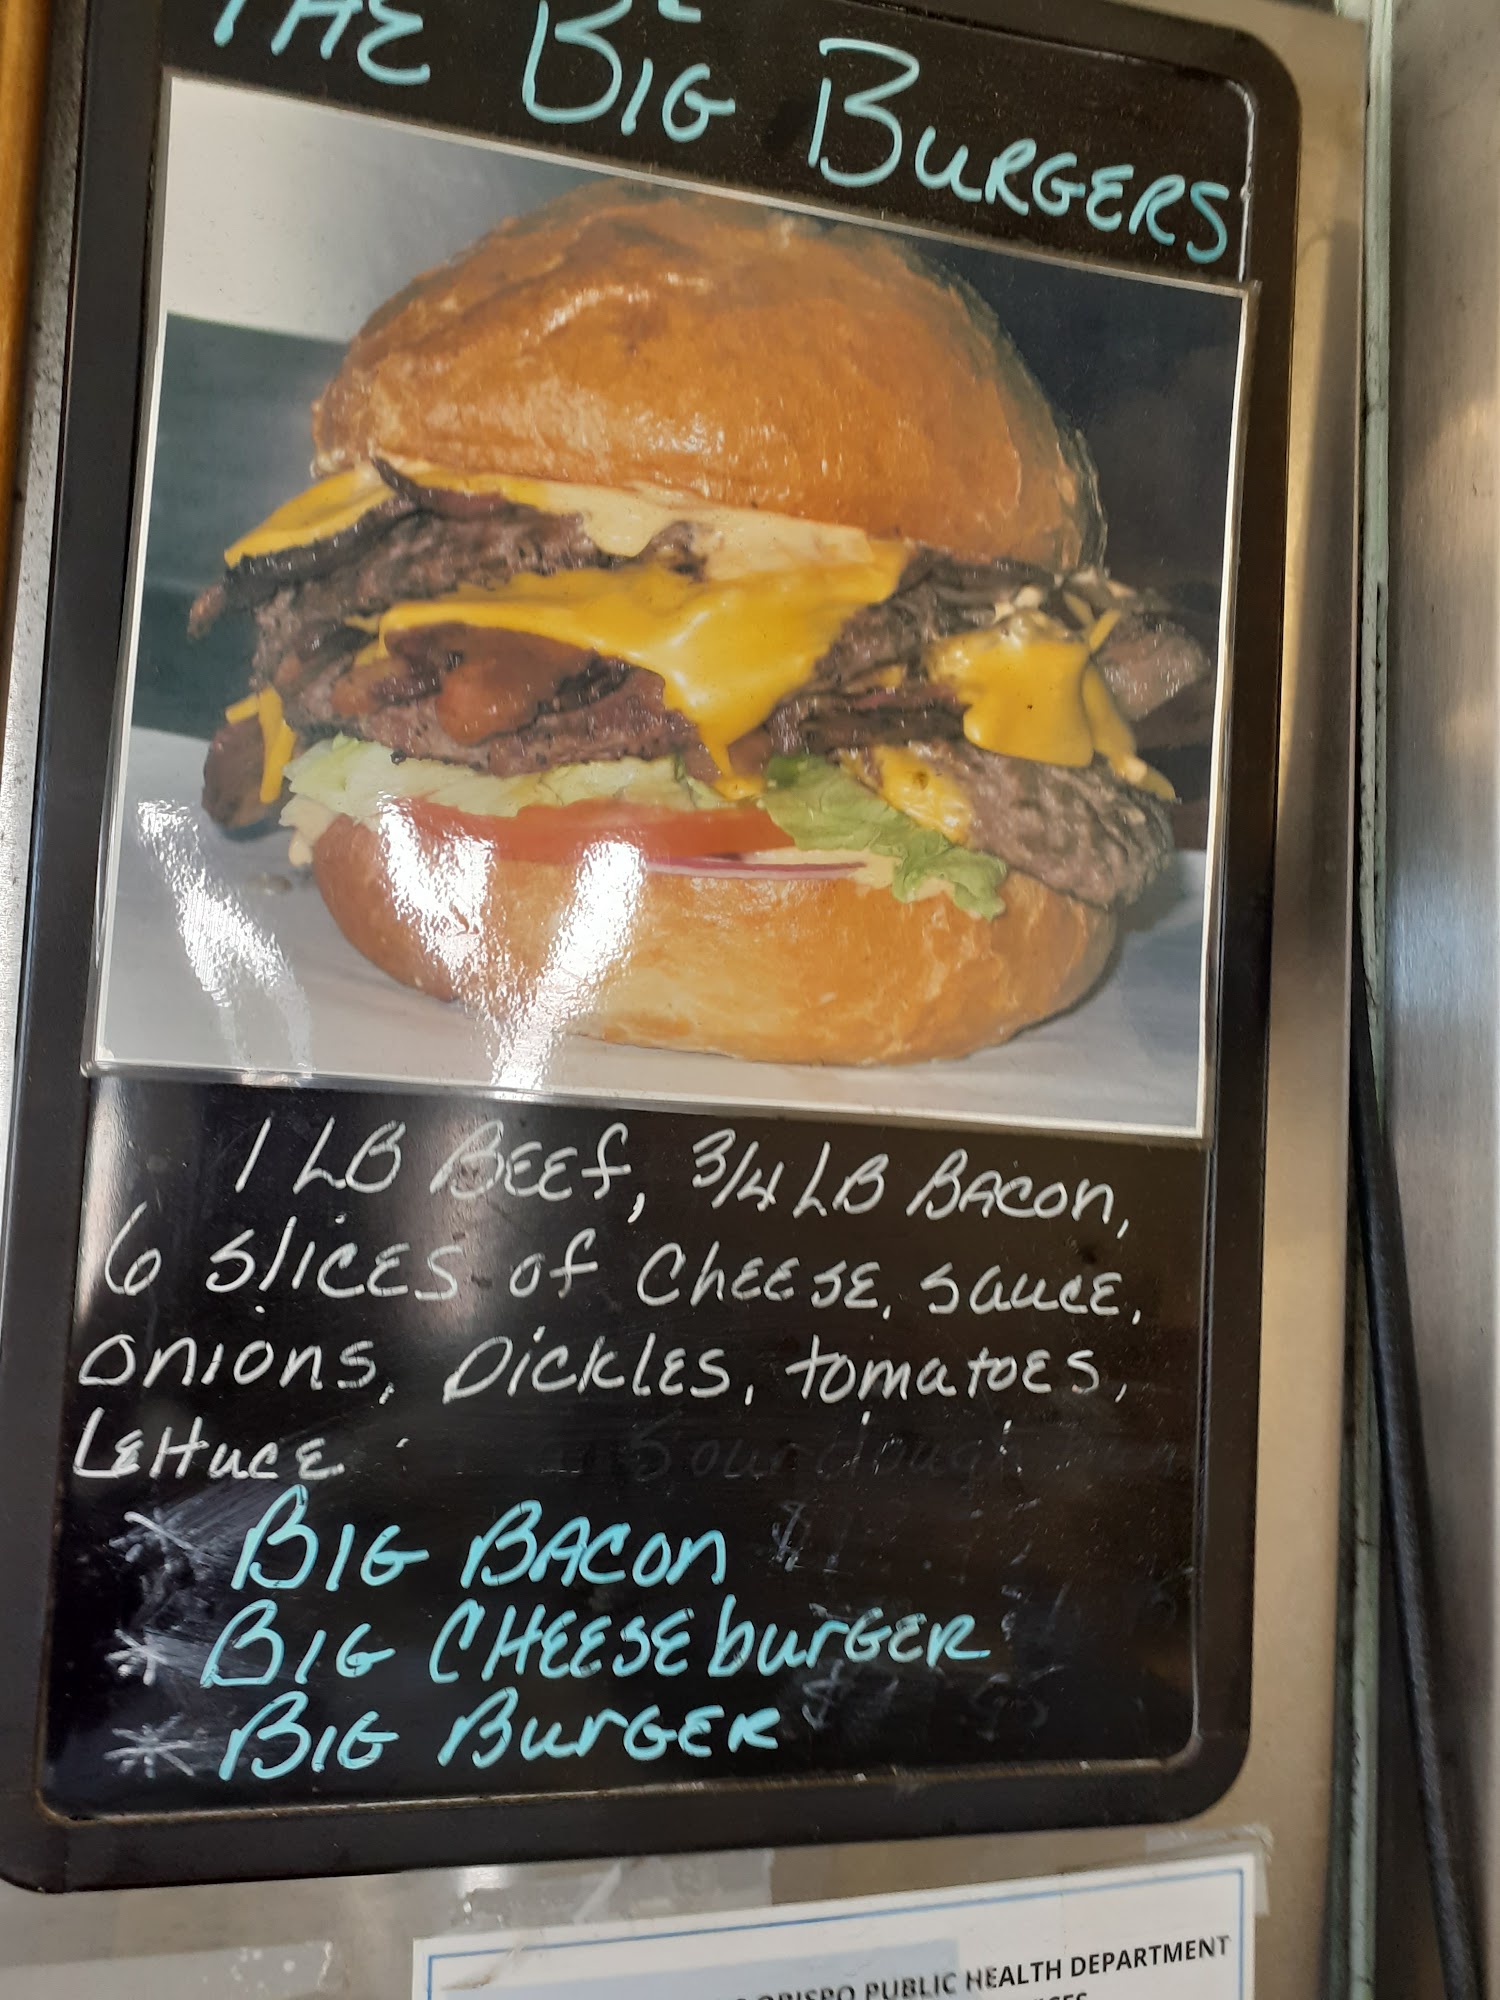 THE BIG BURGERS
1 LB BEEF, 3/4 LB BACON,
6 SLICES OF CHEESE, SAUCE,
ONIONS, PICKLES, TOMATOES,
LETTUCE
* BIG BACON $
* BIG CHEESEBURGER
* BIG BURGER
OBISPO PUBLIC HEALTH DEPARTMENT